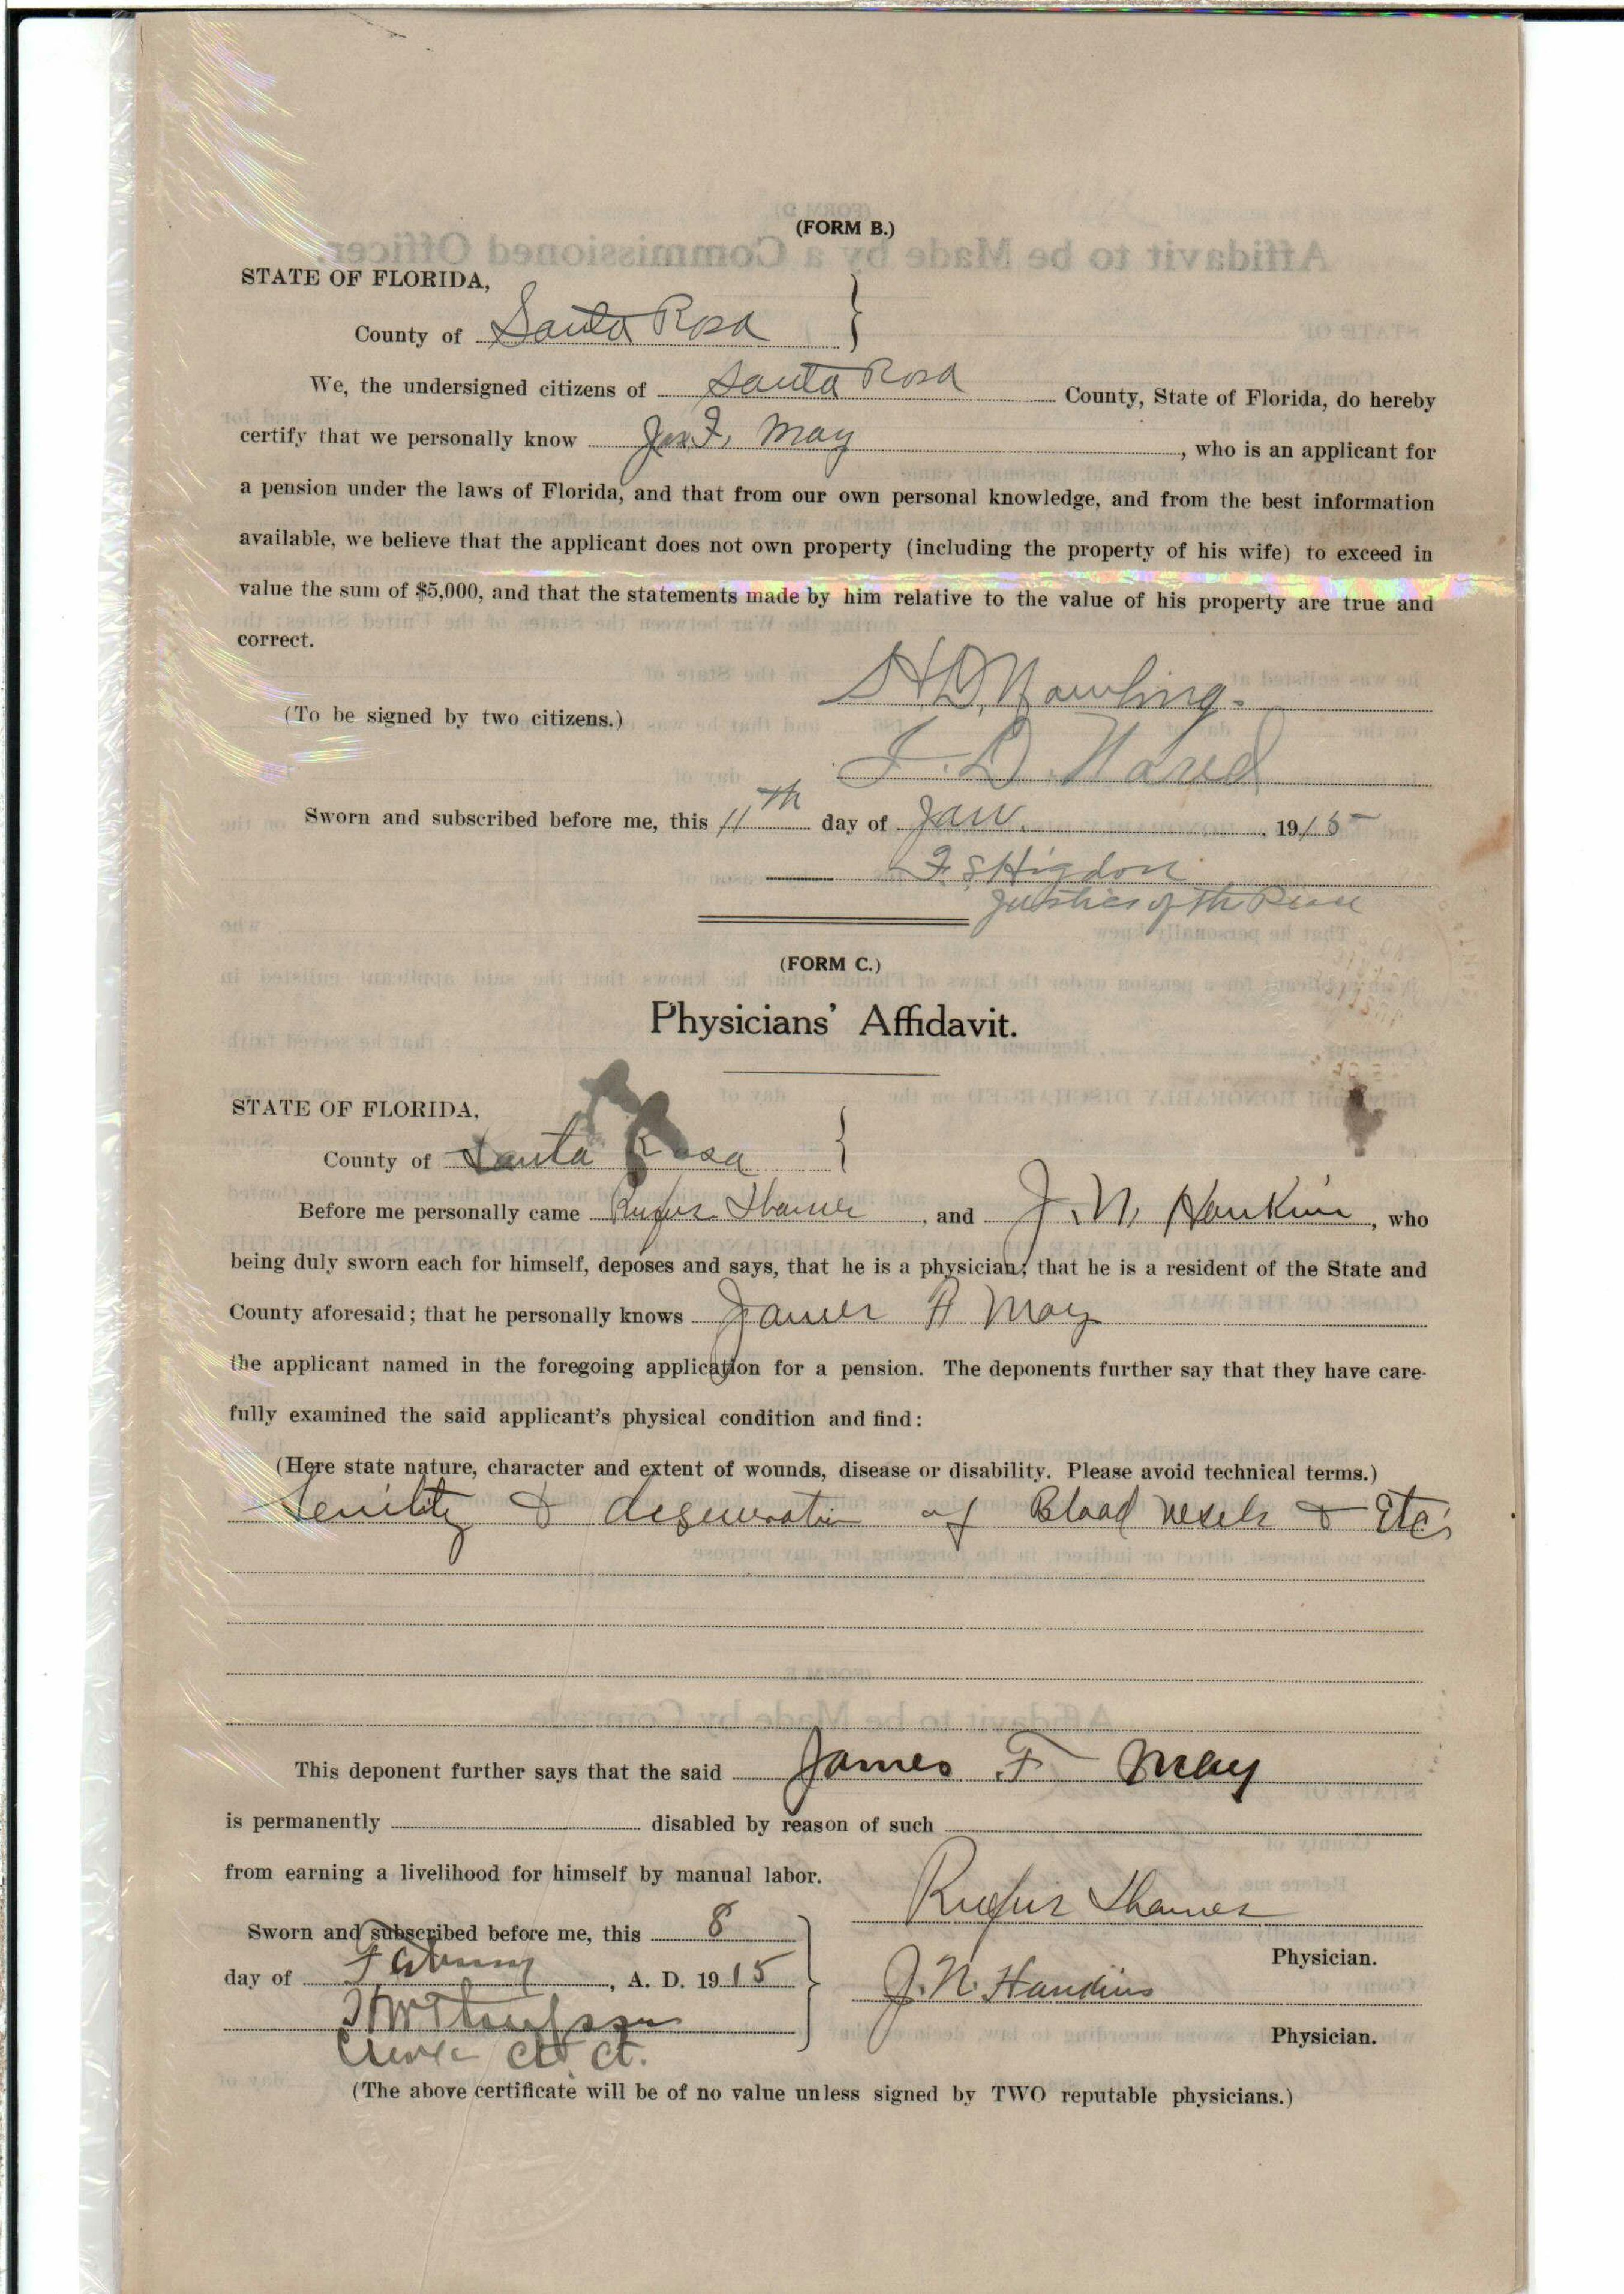 (FORM B.)
STATE OF FLORIDA,
County of Santa Rosa
We, the undersigned citizens of Santa Rosa County, State of Florida, do hereby
certify that we personally know Jas. F. May, who is an applicant for
a pension under the laws of Florida, and that from our own personal knowledge, and from the best information
available, we believe that the applicant does not own property (including the property of his wife) to exceed in
value the sum of $5,000, and that the statements made by him relative to the value of his property are true and
correct.
H. D. Nowling.
(To be signed by two citizens.)
Sworn and subscribed before me, this 11th day of Jan. 1915
F S Higdon
Justice of the Peace
(FORM C.)
Physicians' Affidavit.
STATE OF FLORIDA,
County of Santa Rosa
Before me personally came Rufus Thames, and J. N. Hankins, who
being duly sworn each for himself, deposes and says, that he is a physician; that he is a resident of the State and
County aforesaid; that he personally knows James F May
the applicant named in the foregoing application for a pension. The deponents further say that they have care-
fully examined the said applicant's physical condition and find:
(Here state nature, character and extent of wounds, disease or disability. Please avoid technical terms.)
Senility & degeneration of Blood vesels & Etc.
This deponent further says that the said James F May
is permanently disabled by reason of such
from earning a livelihood for himself by manual labor.
Rufus Thames
Sworn and subscribed before me, this 8
Physician.
day of , A. D. 1915
J. N. Hankins
Physician.
Clerk Ct. Ct.
(The above certificate will be of no value unless signed by TWO reputable physicians.)